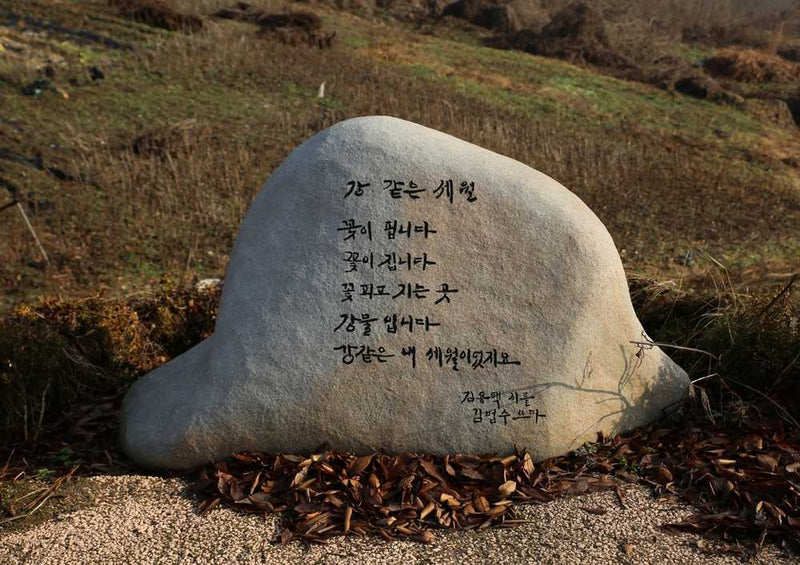 강 같은 세월
꽃이 핍니다
꽃이 집니다
꽃 피고 지는 곳
강물 입니다
강같은 내 세월이었지요
김용택 시를
김범수 쓰다